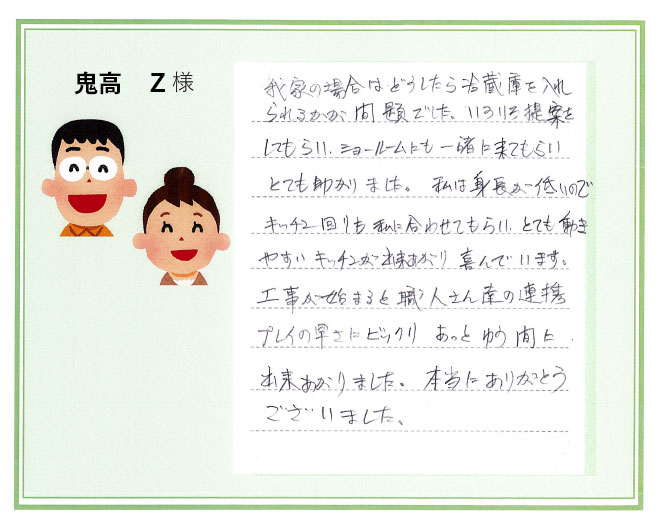 鬼高　Z様
我家の場合はどうしたら冷蔵庫を入れ
られるかが問題でした。いろいろ提案を
してもらい、ショールームにも一緒に来てもらい
とても助かりました。私は身長が低いので
キッチン回りも私に合わせてもらい、とても動き
やすいキッチンが出来あがり喜んでいます。
工事が始まると職人さん達の連携
プレイの早さにビックリ あっとゆう間に
出来あがりました。本当にありがとう
ございました。